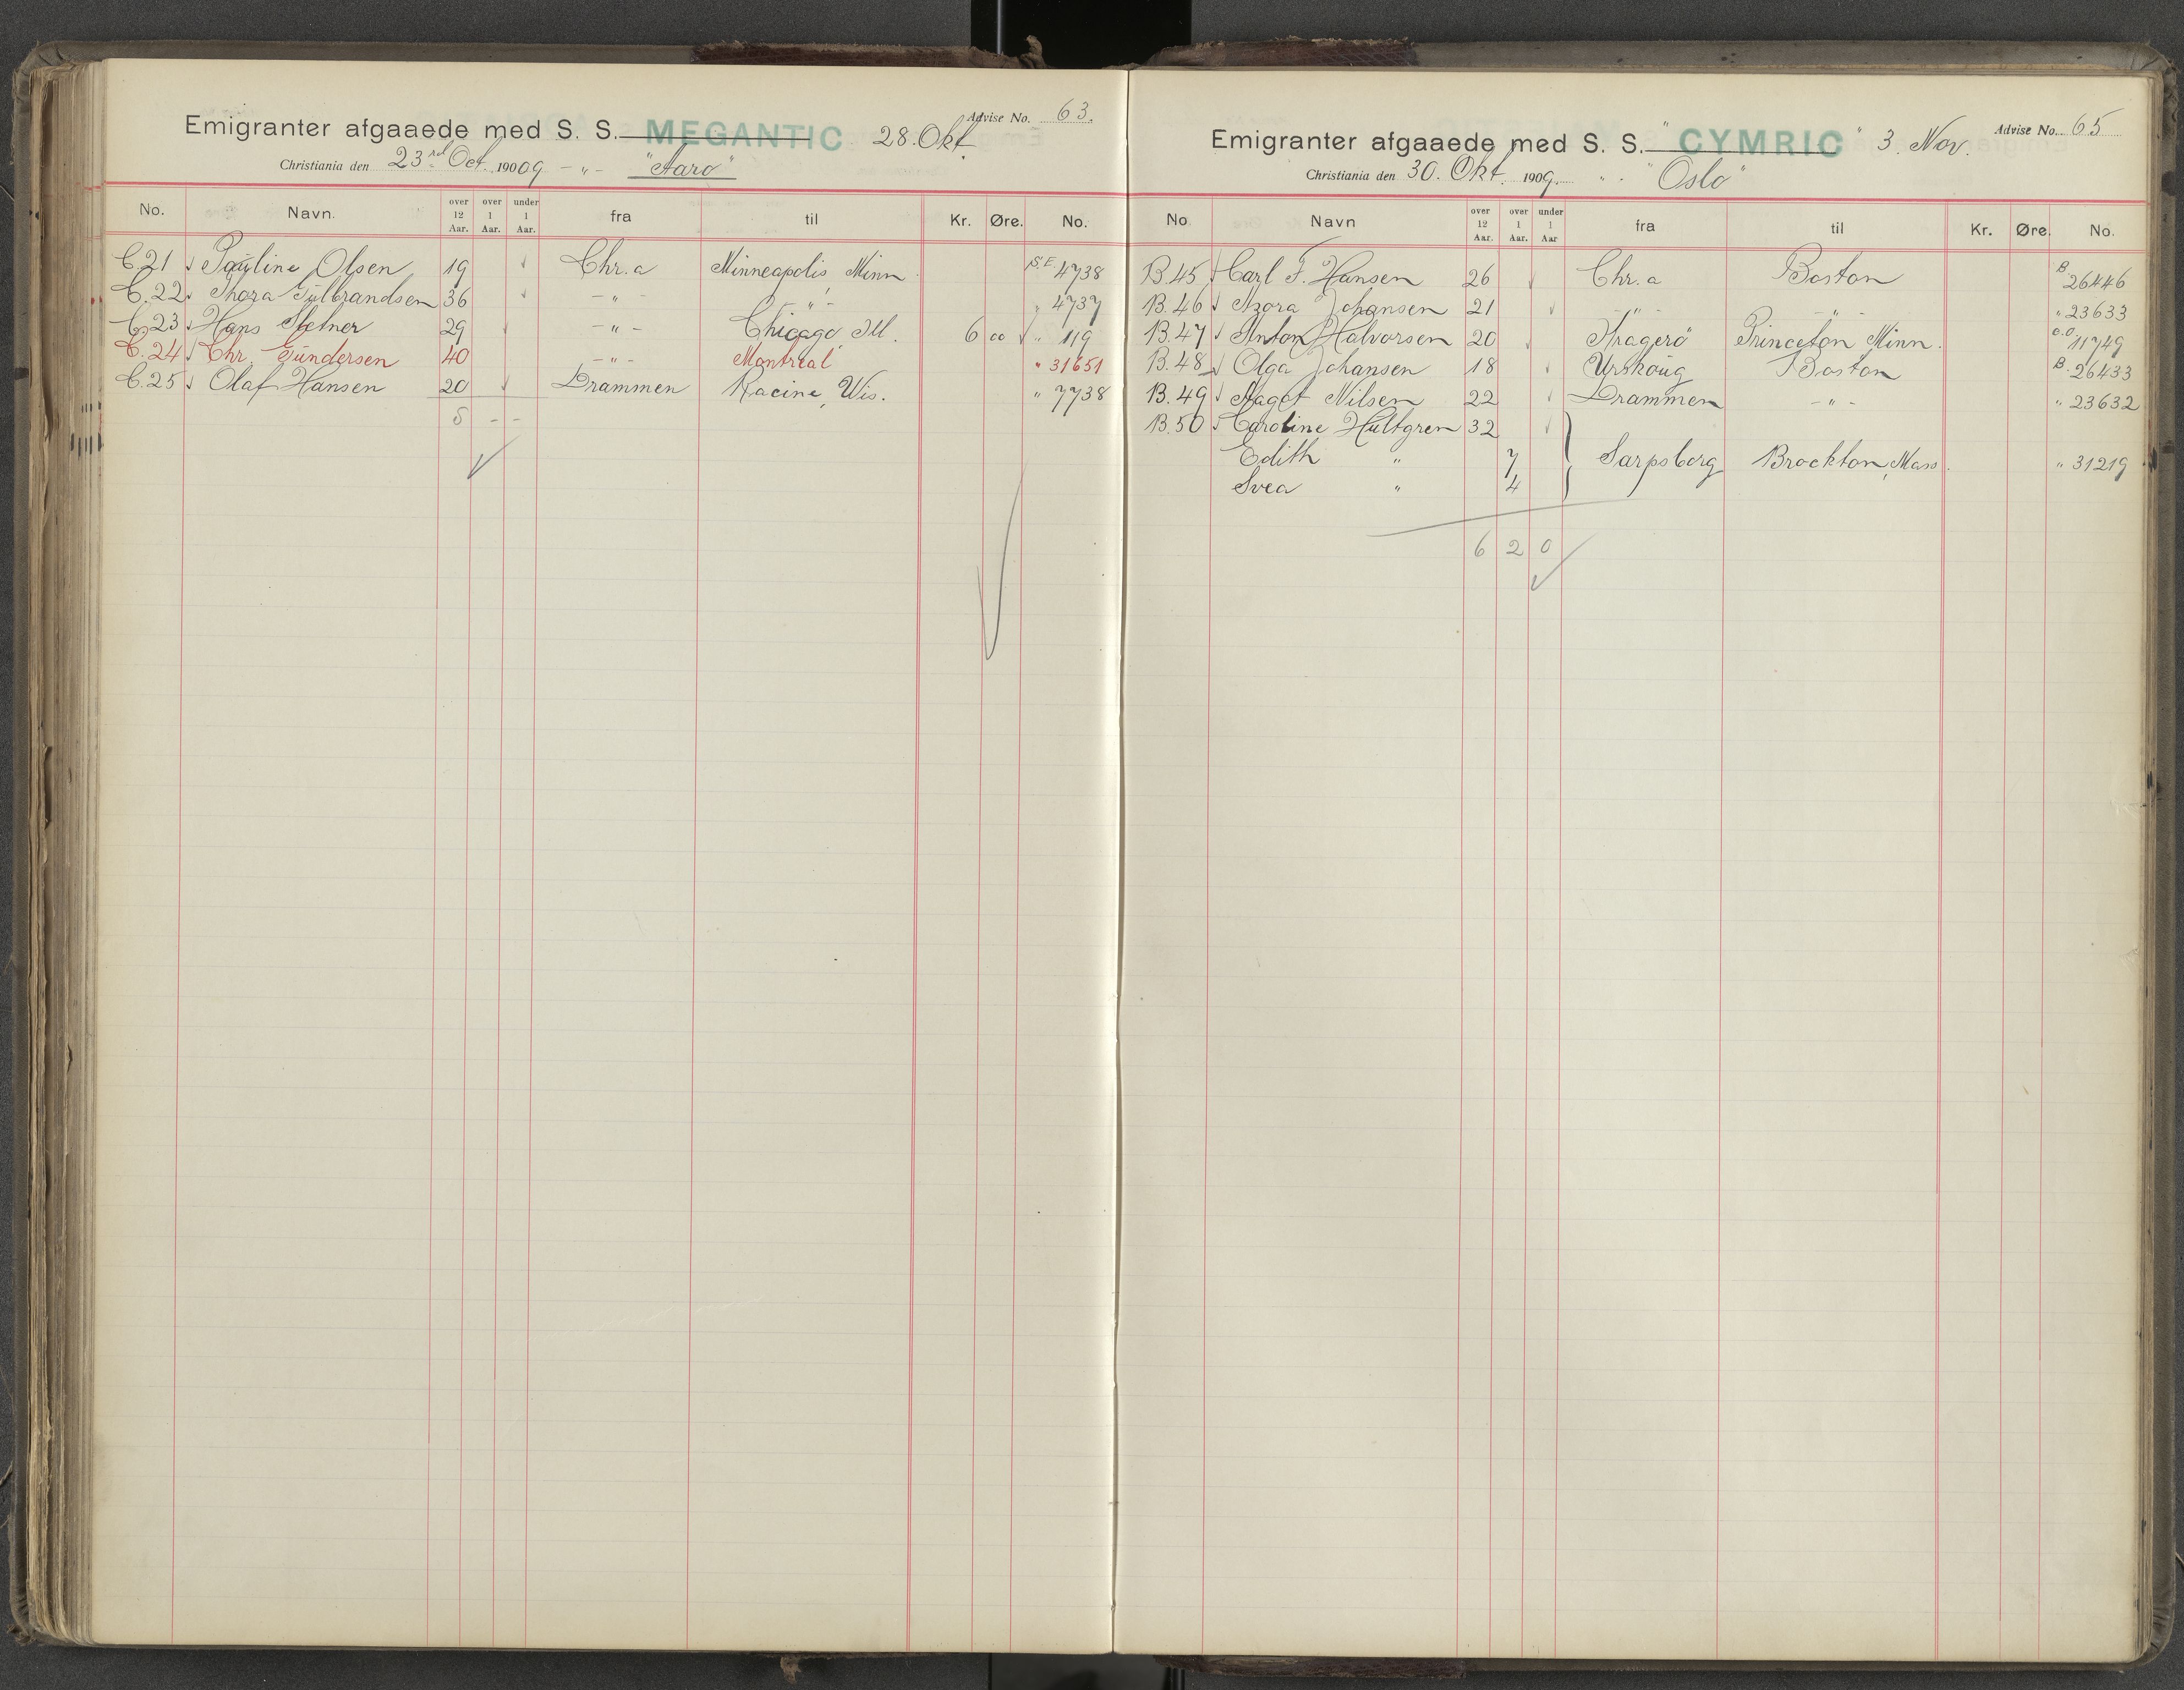 Advise No. 63.
Emigranter afgaaede med S. S. MEGANTIC 28. Okt.
Christiania den 23rd Oct. 190009 - " - "Aaro"
No. Navn. over 12 Aar. over 1 Aar. under 1 Aar. fra til Kr. Øre. No.
C.21 Pauline Olsen 19 Chr.a Minneapolis, Minn. S.E 4738
C.22 Thora Gulbrandsen 36 - " - - " - " 4737
C.23 Hans 29 - " - Chicago, Ill. 6 00 " 119
C.24 Chr. Gundersen 40 - " - Montreal " 31651
C.25 Olaf Hansen 20 Drammen Racine, Wis. " 7738
5 - -
Advise No. 65
Emigranter afgaaede med S. S. "CYMRIC" 3. Nov.
Christiania den 30. Okt. 1909. " - "Oslo"
No Navn over 12 Aar. over 1 Aar. under 1 Aar fra til Kr. Øre. No.
B.45 Carl F. Hansen 26 Chr.a Boston B 26446
B.46 Azora Johansen 21 - " - - " - " 23633
B.47 Anton Halvorsen 20 Kragerö Princeton Minn. C.O 11749
B.48 Olga Johansen 18 Urskoug Boston B. 26433
B.49 Aagot Nilsen 22 Drammen - " - " 23632
B.50 Caroline Hultgren 32
Edith " 7 Sarpsborg Brockton, Mass. " 31219
Svea " 4
6 2 0